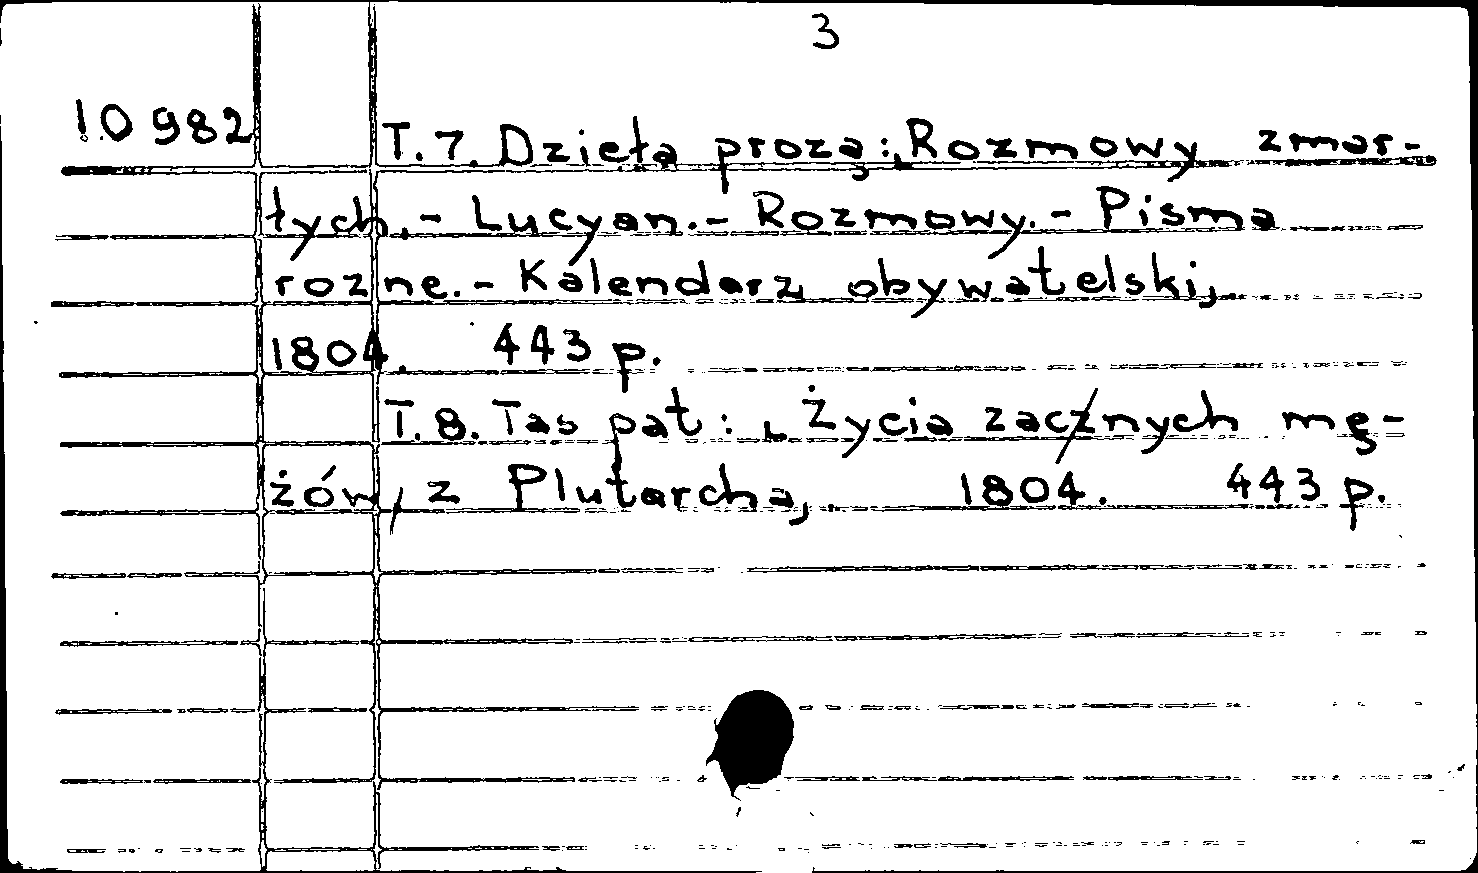 3
10982 T. 7. Dzieła prozą: „Rozmowy zmar-
łych.- Lucyan.- Rozmowy.- Pisma
rozne.- Kalendarz obywatelski„.
1804. 443 p.
T. 8. Tas pat: „Życia zacznych mę-
żów, z Plutarcha„. 1804. 443 p.